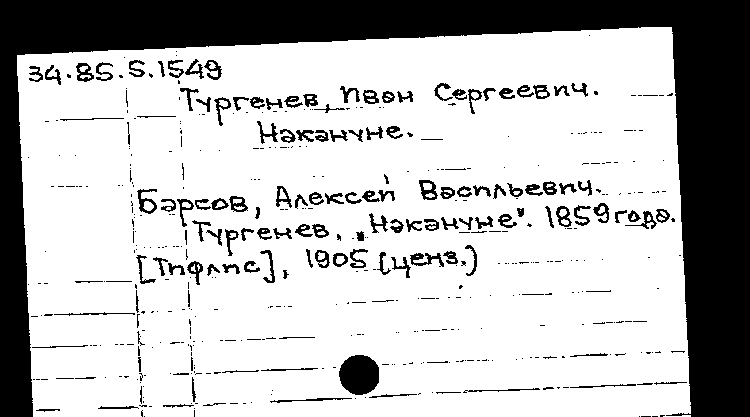 34.85.S.1549
Тургенев, Иван Сергеевич.
Накануне.
Барсов, Алексей Васильевич.
Тургенев. „Накануне". 1859 года.
[Тифлис], 1905 (ценз.)